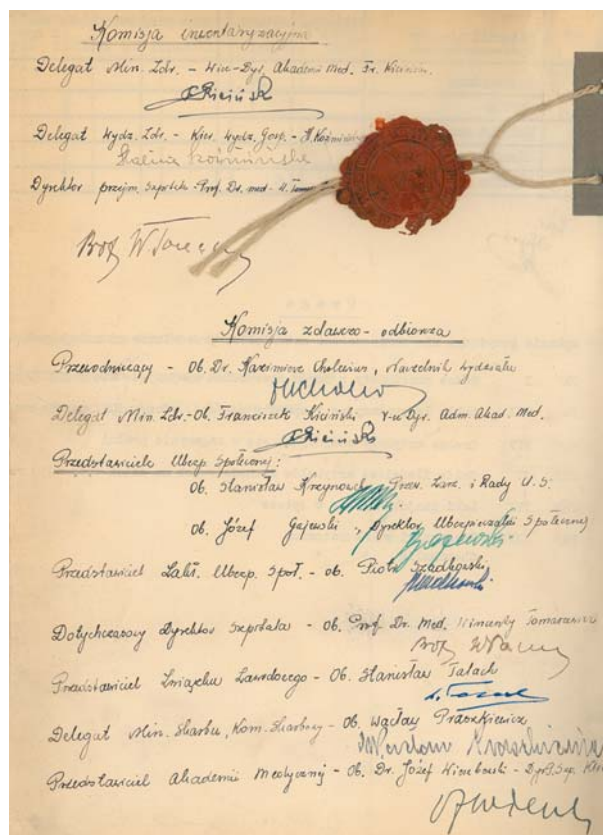 Komisja inwentaryzacyjna
Delegat Min. Zdr. - Wice-Dyr. Akademii Med. Fr. Kiciński.
FKiciński
Delegat Wydz. Zdr. - Kier. Wydz. Gosp. - H. Koźmińska
Halina Koźmińska
Dyrektor przejm. Szpitala - Prof. Dr. med. W. Toma
Prof. WTomasz
Komisja zdawczo - odbiorcza
Przewodniczący - Ob. Dr. Kazimierz , Naczelnik Wydziału
Delegat Min. Zdr. - Ob. Franciszek Kiciński V-ce Dyr. Adm. Akad. Med.
FKiciński
Przedstawiciele Ubezp. Społecznej:
Ob. Stanisław Przew. Zarz. i Rady U.S.
Ob. Józef Gajewski, Dyrektor Ubezpieczalni Społecznej
Gajewski
Przedstawiciel Zakł. Ubezp. Społ. - Ob. Piotr Szadkowski
Szadkowski
Dotychczasowy Dyrektor Szpitala - Ob. Prof. Dr. Med. Tomaszewicz
Prof.
Przedstawiciel Związku Zawodowego - Ob. Stanisław Tałach
Delegat Min. Skarbu, Kom. Skarbowy - Ob. Wacław Praszkiewicz
Wacław Praszkiewicz
Przedstawiciel Akademii Medycznej - Ob. Dr. Józef - Dyr.